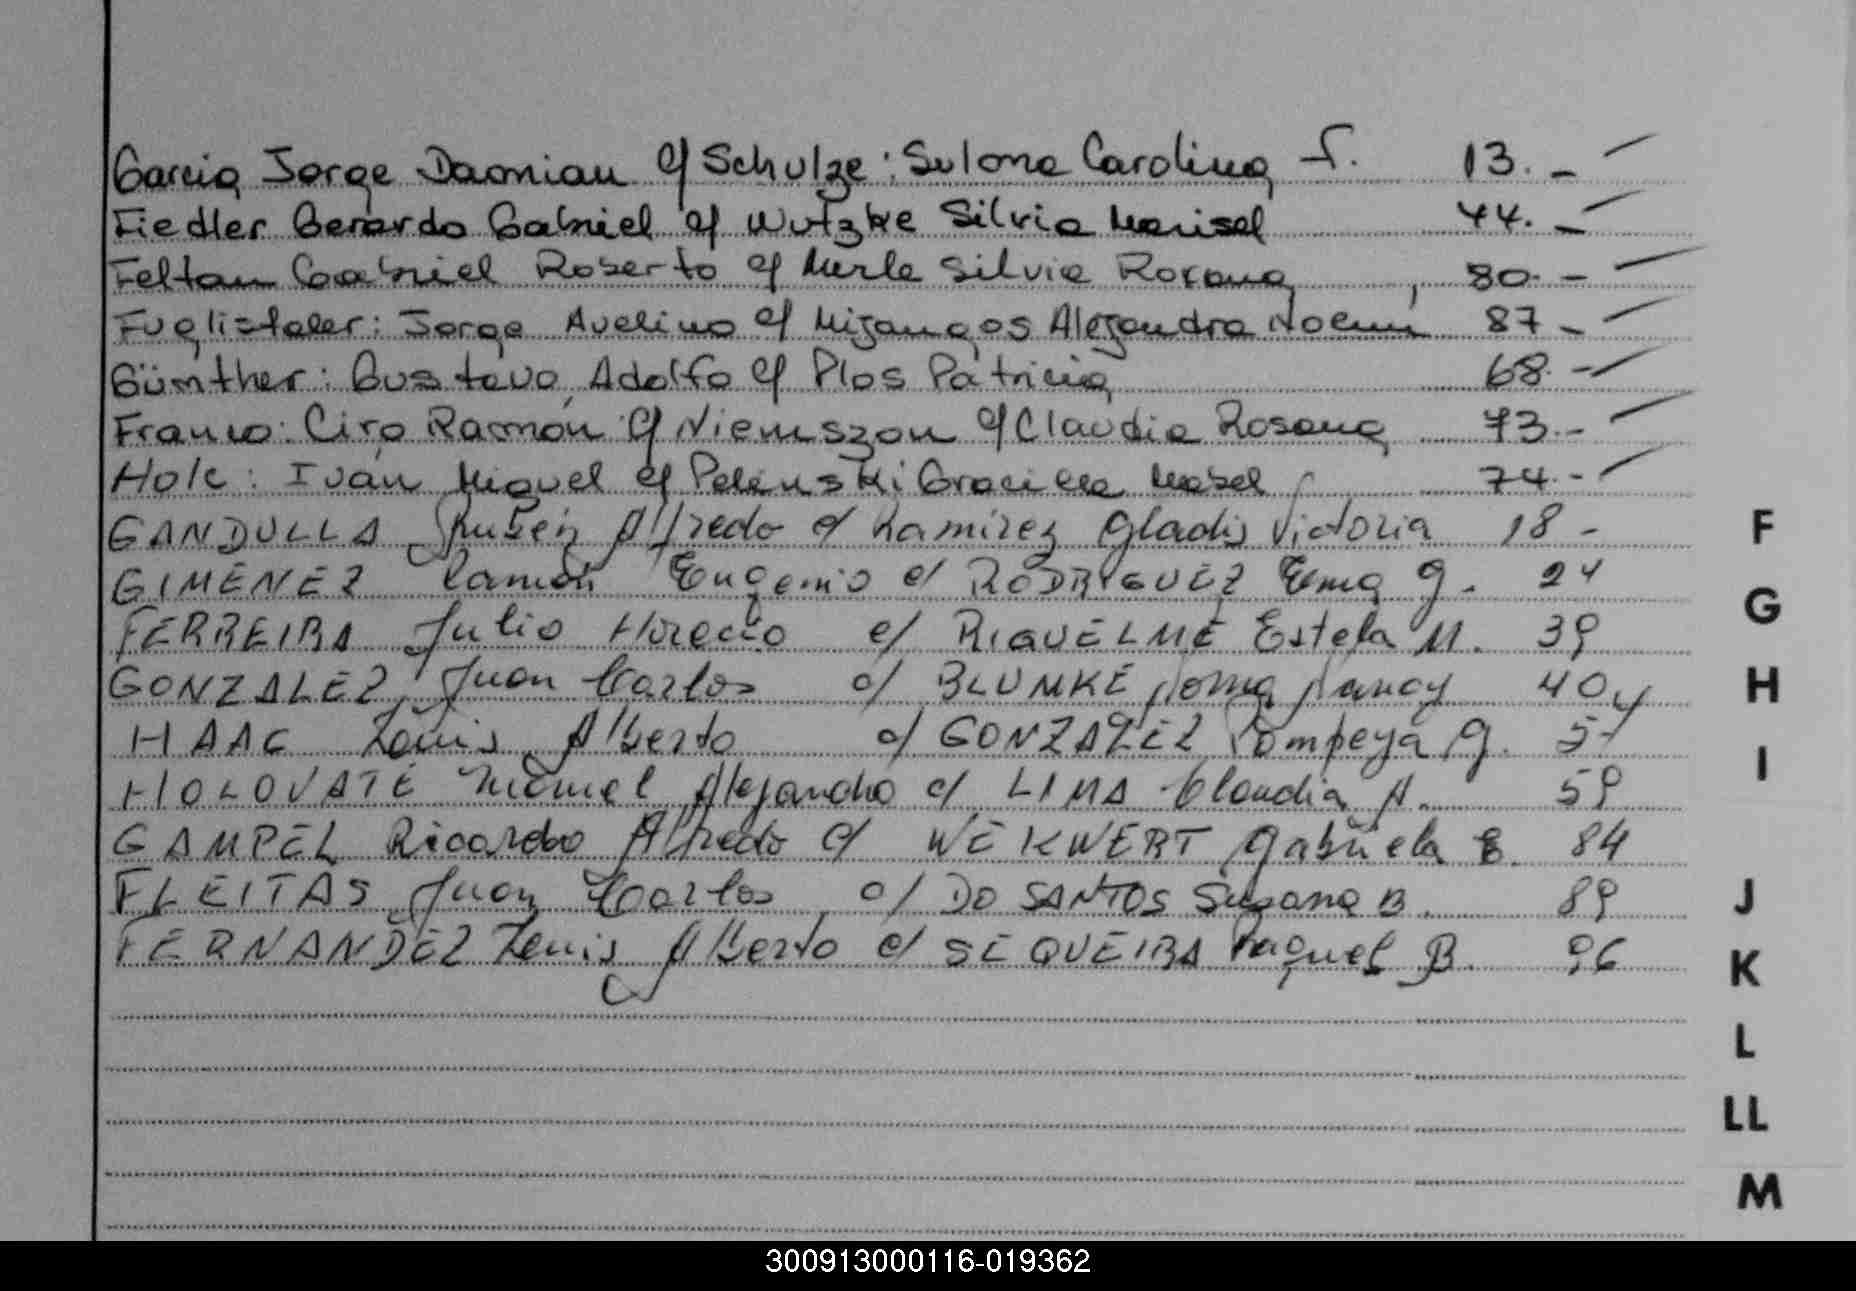 Garcia Jorge Damian c/ Schulze: Sulma Carolina F. 13.-
Fiedler Gerardo Gabriel c/ Wutzke Silvia Marisel 44.-
Feltan Gabriel Roberto c/ Merle Silvia Roxana, 80.-
Fuglistaler: Jorge Avelino c/ Mizangos Alejandra Noemi 87-
Günther: Gustavo Adolfo c/ Plos Patricia 68.-
Franco: Ciro Ramón c/ Niemszon c/ Claudia Rosana 73.-
Holc: Iván Miguel c/ Pelenski Graciela Mabel 74.-
GANDULLA Ruben Alfredo c/ Ramirez Gladis Victoria 18-
GIMENEZ Ramón Eugenio c/ RODRIGUEZ Ema G. 24
FERREIRA Julio Horacio c/ RIQUELME Estela M. 39
GONZALEZ Juan Carlos c/ BLUMKE Norma Nancy 40
HAAG Luis Alberto c/ GONZALEZ Pompeya G. 54
HOLOVATE Manuel Alejandro c/ LIMA Claudia A. 59
GAMPEL Ricardo Alfredo c/ WEKWERT Gabriela E. 84
FLEITAS Juan Carlos c/ DO SANTOS Susana B. 89
FERNANDEZ Luis Alberto c/ SEQUEIRA Raquel B. 96
F
G
H
I
J
K
L
LL
M
300913000116-019362